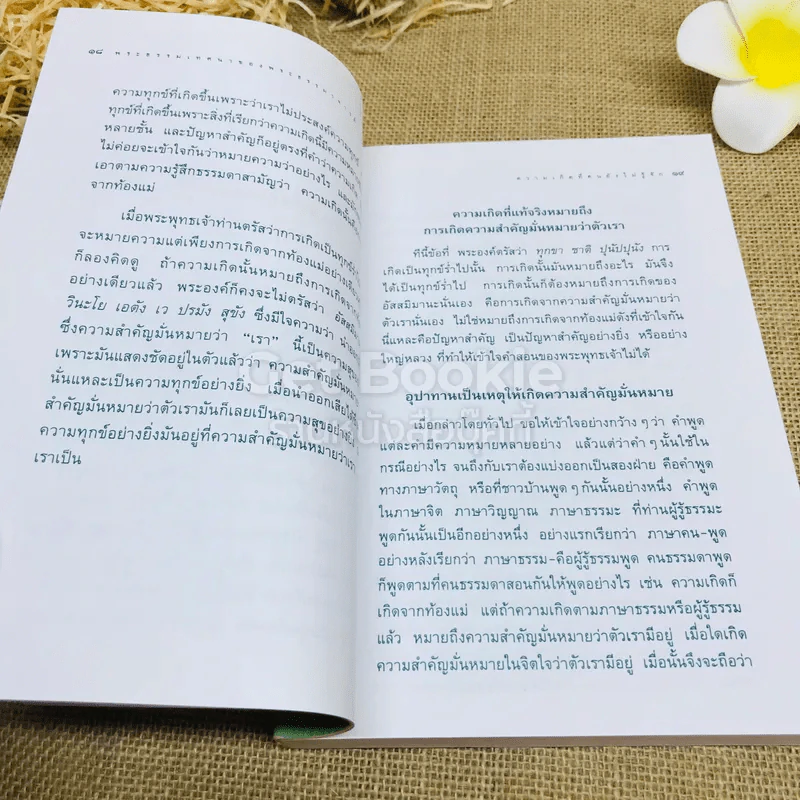 ๑๘ พระธรรมเทศนาของพระธรรมโกศาจารย์
ความทุกข์ที่เกิดขึ้นเพราะว่าเราไม่ประสงค์ความทุกข์
ทุกข์ที่เกิดขึ้นเพราะสิ่งที่เรียกว่าความเกิดนี้มีความหมาย
หลายชั้น และปัญหาสำคัญก็อยู่ตรงที่คำว่าความเกิด
ไม่ค่อยจะเข้าใจกันว่าหมายความว่าอย่างไร
เอาตามความรู้สึกธรรมดาสามัญว่า ความเกิดนั้น
จากท้องแม่
เมื่อพระพุทธเจ้าท่านตรัสว่าการเกิดเป็นทุกข์
จะหมายความแต่เพียงการเกิดจากท้องแม่อย่างเดียว
ก็ลองคิดดู ถ้าความเกิดนั้นหมายถึงการเกิดจาก
อย่างเดียวแล้ว พระองค์ก็คงจะไม่ตรัสว่า
วินะโย เอตัง เว ปรมัง สุขัง ซึ่งมีใจความว่า
ซึ่งความสำคัญมั่นหมายว่า “เรา” นี้เป็นความสุข
เพราะมันแสดงชัดอยู่ในตัวแล้วว่า ความสำคัญมั่นหมาย
นั่นแหละเป็นความทุกข์อย่างยิ่ง เมื่อนำออกเสียได้
สำคัญมั่นหมายว่าตัวเรามันก็เลยเป็นความสุขอย่างยิ่ง
ความทุกข์อย่างยิ่งมันอยู่ที่ความสำคัญมั่นหมายว่าเรา
เราเป็น
ความเกิดที่คนยังไม่รู้จัก ๑๙
ความเกิดที่แท้จริงหมายถึง
การเกิดความสำคัญมั่นหมายว่าตัวเรา
ทีนี้ข้อที่ พระองค์ตรัสว่า ทุกขา ชาติ ปุนัปปุนัง การ
เกิดเป็นทุกข์ร่ำไปนั้น การเกิดนั้นมันหมายถึงอะไร มันจึง
ได้เป็นทุกข์ร่ำไป การเกิดนั้นก็ต้องหมายถึงการเกิดของ
อัสสมิมานะนั่นเอง คือการเกิดจากความสำคัญมั่นหมายว่า
ตัวเรานั่นเอง ไม่ใช่หมายถึงการเกิดจากท้องแม่ดังที่เข้าใจกัน
นี่แหละคือปัญหาสำคัญ เป็นปัญหาสำคัญอย่างยิ่ง หรืออย่าง
ใหญ่หลวง ที่ทำให้เข้าใจคำสอนของพระพุทธเจ้าไม่ได้
อุปาทานเป็นเหตุให้เกิดความสำคัญมั่นหมาย
เมื่อกล่าวโดยทั่วไป ขอให้เข้าใจอย่างกว้าง ๆ ว่า คำพูด
แต่ละคำมีความหมายหลายอย่าง แล้วแต่ว่าคำ ๆ นั้นใช้ใน
กรณีอย่างไร จนถึงกับเราต้องแบ่งออกเป็นสองฝ่าย คือคำพูด
ทางภาษาวัตถุ หรือที่ชาวบ้านพูด ๆ กันนั้นอย่างหนึ่ง คำพูด
ในภาษาจิต ภาษาวิญญาณ ภาษาธรรมะ ที่ท่านผู้รู้ธรรมะ
พูดกันนั้นเป็นอีกอย่างหนึ่ง อย่างแรกเรียกว่า ภาษาคน-พูด
อย่างหลังเรียกว่า ภาษาธรรม-คือผู้รู้ธรรมพูด คนธรรมดาพูด
ก็พูดตามที่คนธรรมดาสอนกันให้พูดอย่างไร เช่น ความเกิดก็
เกิดจากท้องแม่ แต่ถ้าความเกิดตามภาษาธรรมหรือผู้รู้ธรรม
แล้ว หมายถึงความสำคัญมั่นหมายว่าตัวเรามีอยู่ เมื่อใดเกิด
ความสำคัญมั่นหมายในจิตใจว่าตัวเรามีอยู่ เมื่อนั้นจึงจะถือว่า
Get Bookie
ร้านหนังสือบุ๊คกี้